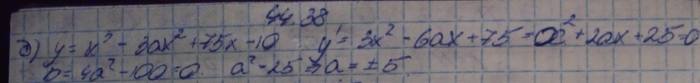 44.38
б) y = x³ - 3ax² + 75x - 10 y' = 3x² - 6ax + 75 = x² + 2ax + 25 = 0
D = 4a² - 100 = 0 a² - 25 a = ± 5